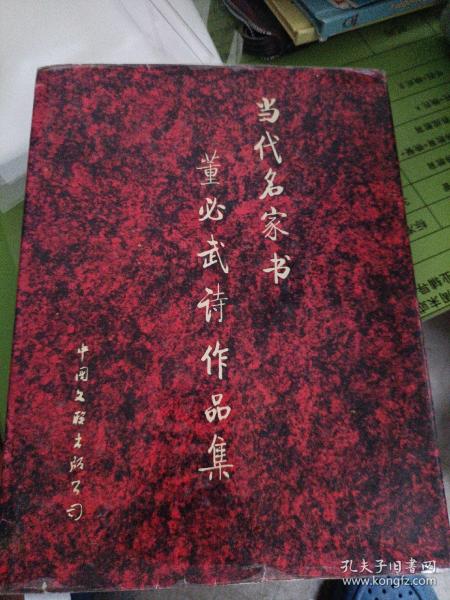 当代名家书
董必武诗作品集
中国文联出版公司
孔夫子旧书网
www.kongfz.com